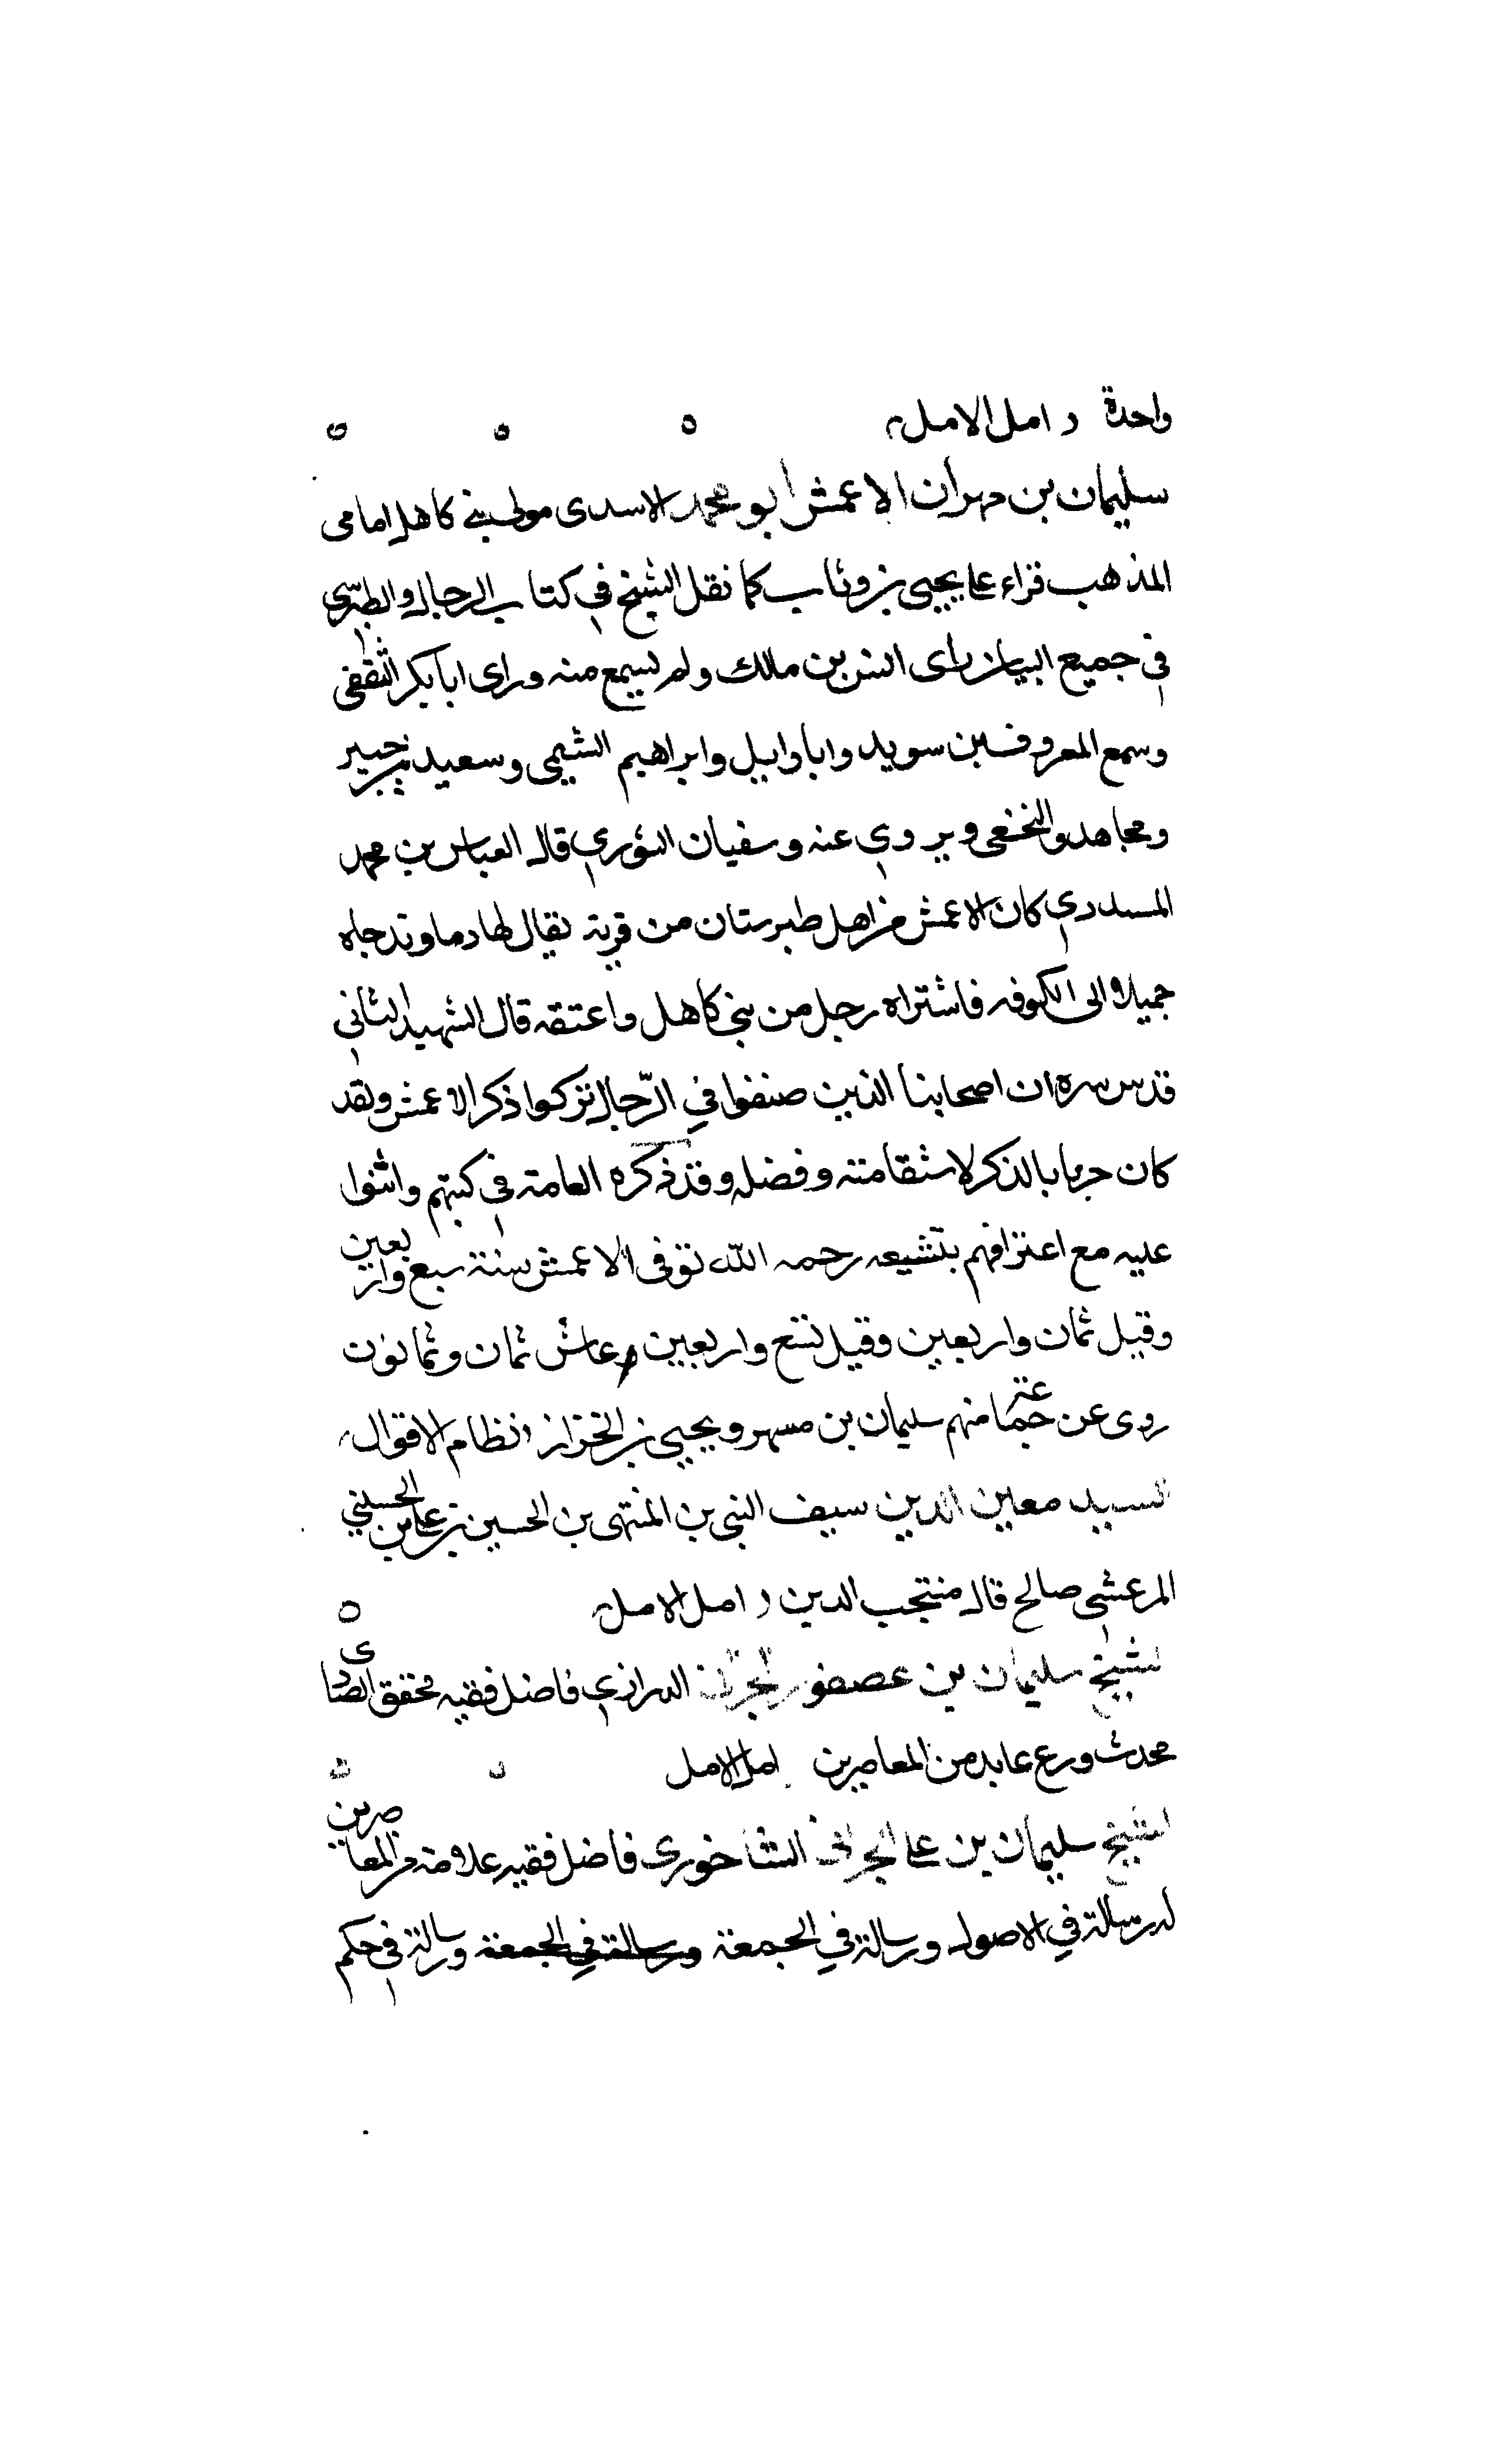 واحدة امل الامل
سليمان بن مهران الاعمش ابو محمد الاسدى مولى بنى كاهل امامى
المذهب قراء على يحيى بن وثاب كما نقل الشيخ في كتاب الرجال والطبرسى
في جميع البيان راى انس بن مالك ولم يسمع منه وراى ابا بكر الثقفى
وسمع المعروف بن سويد وابا وايل وابراهيم التيمى وسعيد بن جبير
ومجاهد والنخعى ويروي عنه وسفيان الثوري قال العباس بن محمد
كان الاعمش من اهل طبرستان من قرية يقال لها دماوند جاه
جميلا الى الكوفه فاشتراه رجل من بنى كاهل واعتقه قال الشهيد الثاني
قدس سره ان اصحابنا الذين صنفوا في الرّجال تركوا ذكر الاعمش ولقد
كان حريا بالذكر لاستقامته وفضله وقد ذكره العامة في كتبهم واثنوا
عليه مع اعترافهم بتشيعه رحمه الله توفى الاعمش سنة سبع واربعين
وقيل ثمان واربعين وقيل تسع واربعين وعاش ثمان وثمانون
روى عن جماعة منهم سليمان بن مسهر ويحيى بن الخزاز نظام الاقوال
السيد معين الدين سيف النبى بن المنتهى بن الحسين بن على بن الحسينى
المرعشى صالح قاله منتجب الدين امل الامل
الشيخ سليمان بن عصفور البحراني الدرازي فاضل فقيه محقق
محدث ورع عابد من المعاصرين امل الامل
الشيخ سليمان بن على البحرانى الشاخورى فاضل فقيه علامة من المعاصرين
له رسالة في الاصول ورسالة في الجمعة ورسالة في الجمعة ورسالة في حكم